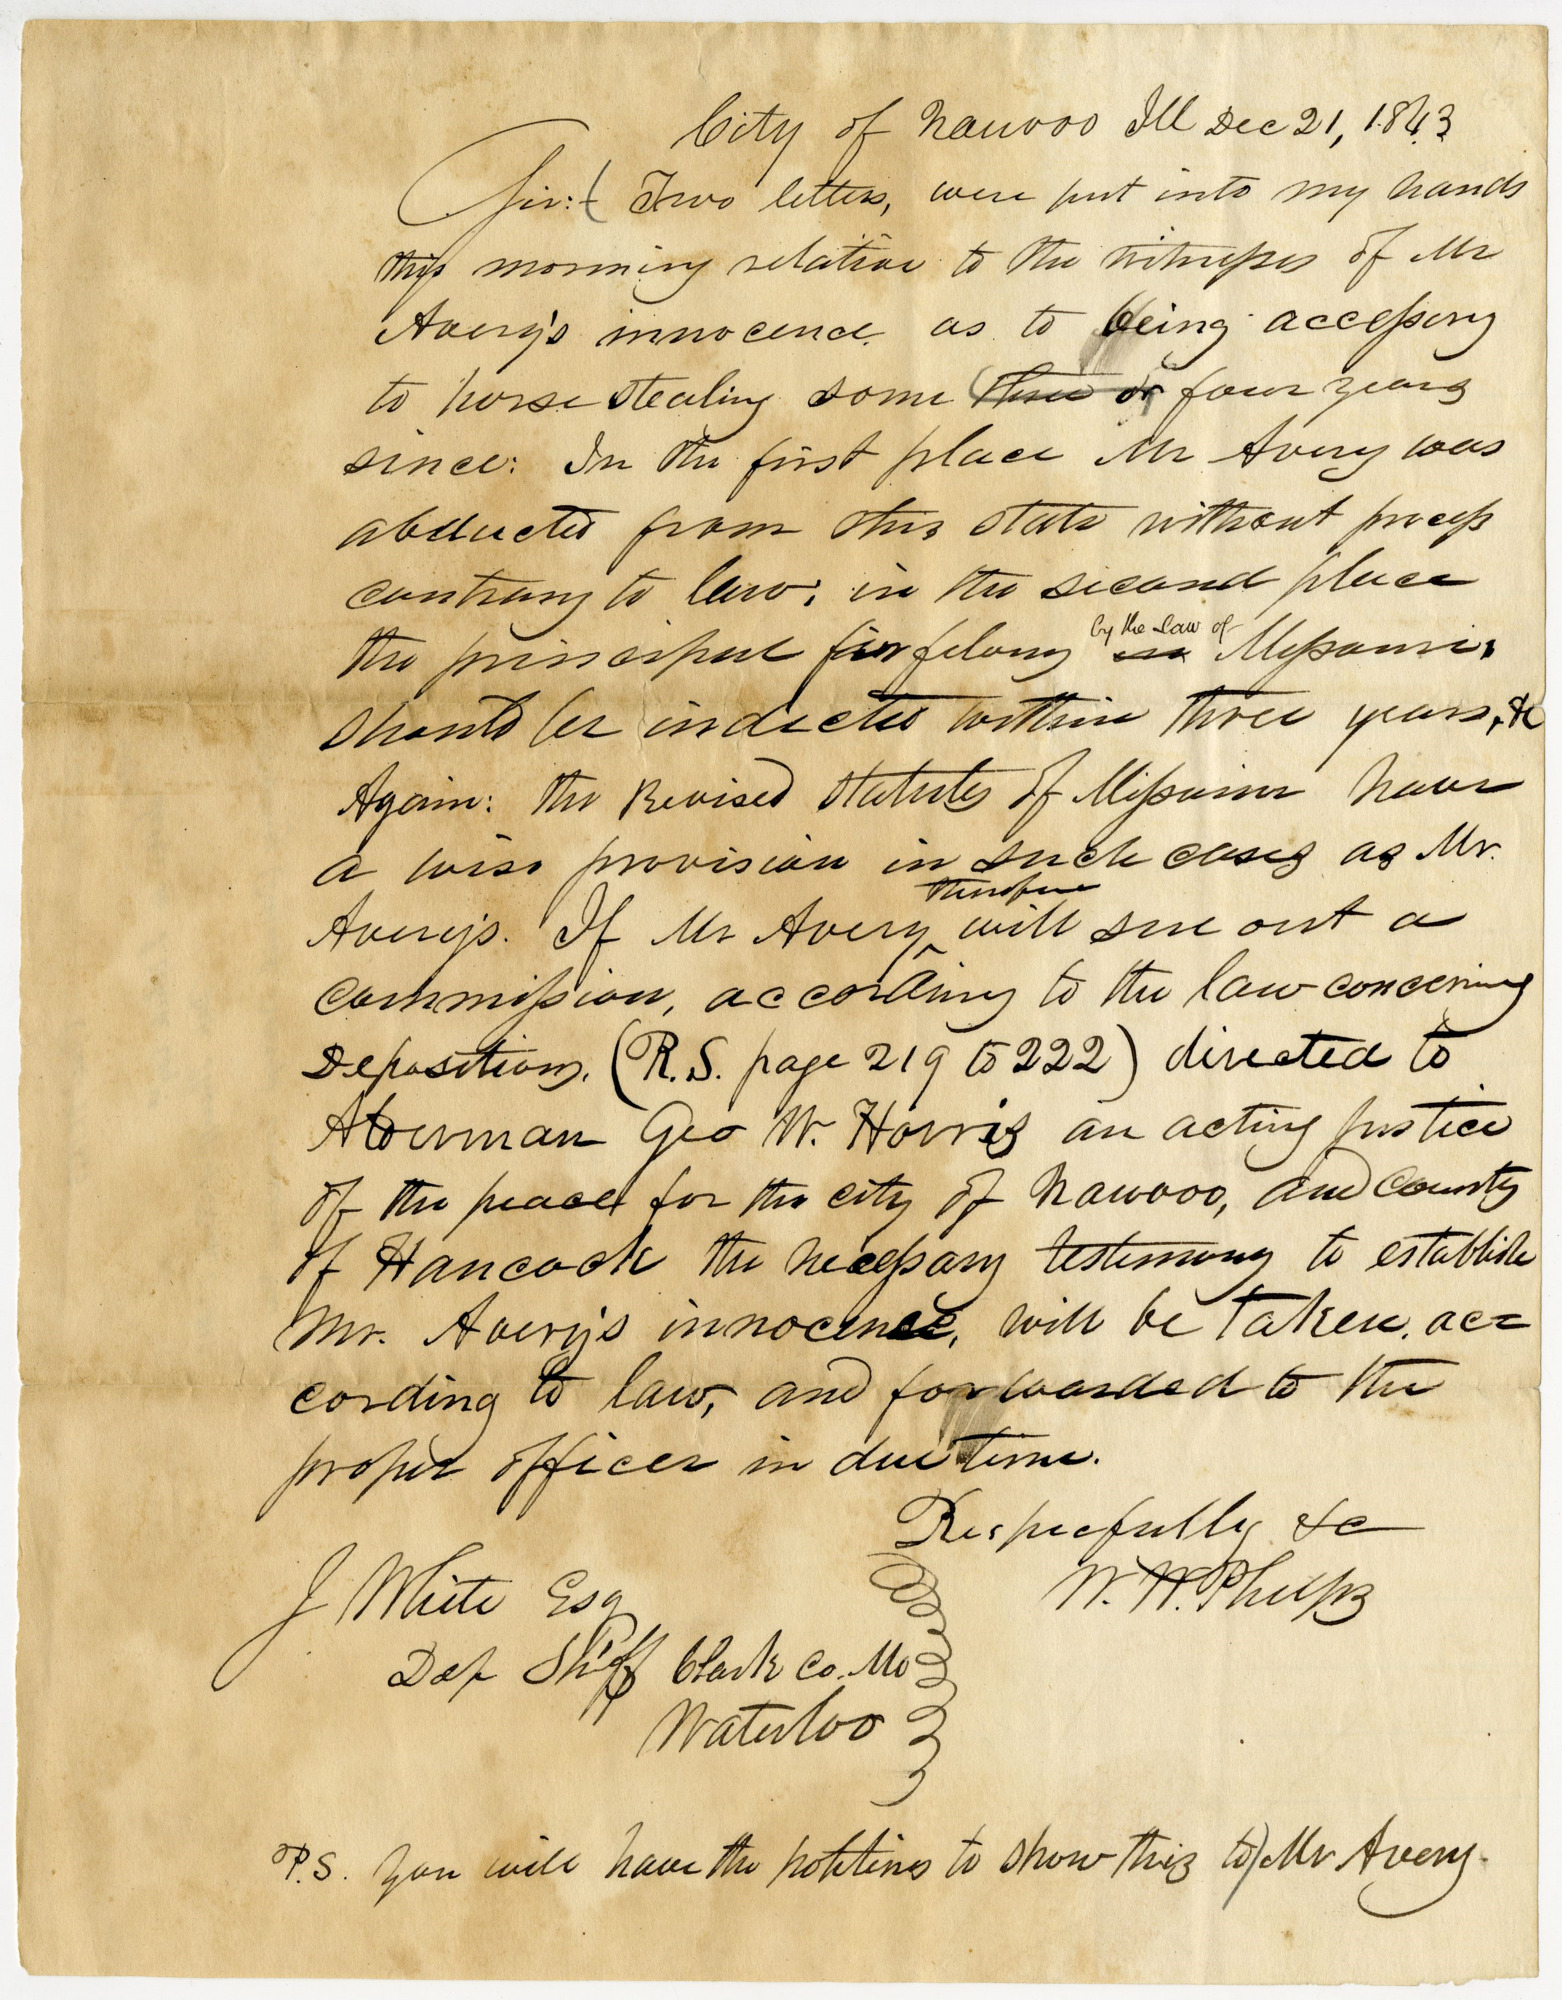 City of Nauvoo Ill Dec 21, 1843
Sir: Two letters, were put into my hands
this morning relative to the witnesses of Mr
Avery's innocence as to being accessory
to horse stealing some three or four years
since: In the first place Mr Avery was
abducted from this State without process
contrary to law; in the second place
by the law of
the principal for felony in Missouri,
should be indicted within three years, &c
Again: the Revised Statutes of Missouri have
a wise provision in such cases as Mr.
therefore
Avery's. If Mr Avery ^ will sue out a
commission, according to the law concerning
Depositions, (R.S. page 219 to 222) directed to
Alderman Geo W. Harris an acting justice
of the peace for the city of Nauvoo, and County
of Hancock the necessary testimony to establish
Mr. Avery's innocence, will be taken, ac=
cording to law, and forwarded to the
proper officer in due time.
Respecfully &c
W. W. Phelps
J White Esq
Dep Shff Clark Co. Mo
Waterloo
P.S. You will have the politines to show this to Mr Avery.